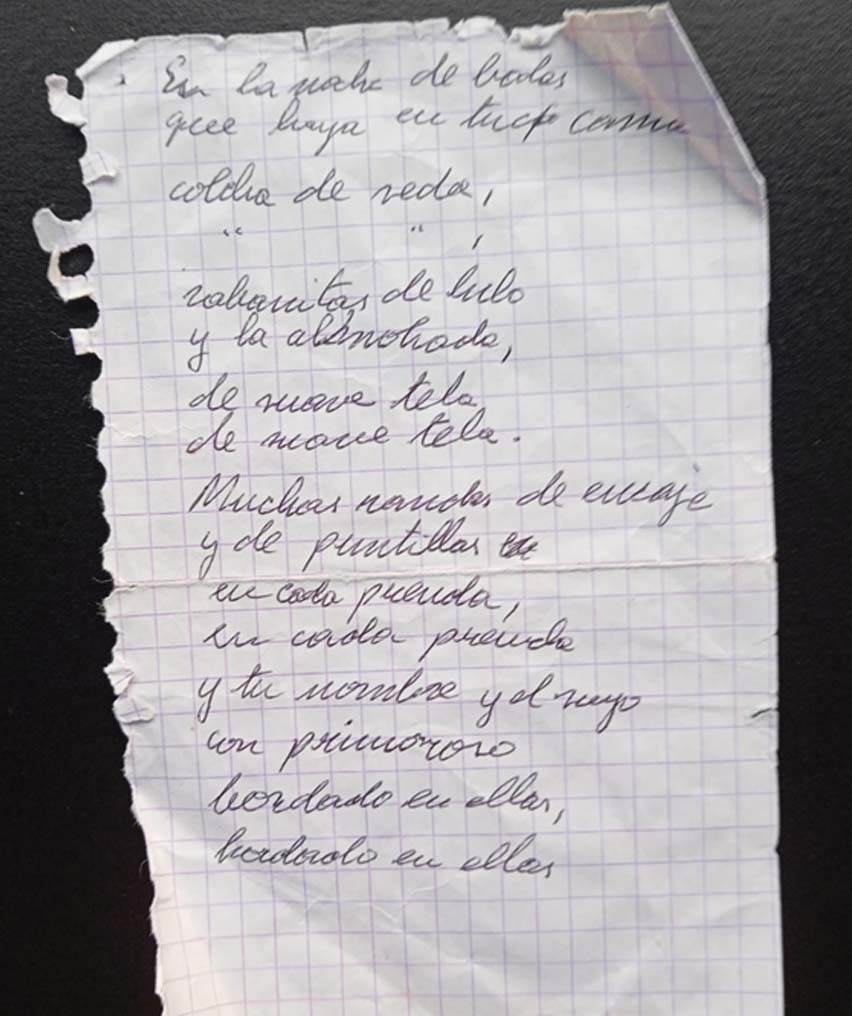 En la noche de bodas
que haya en tu cama
colcha de seda,
" " ,
sabanitas de hilo
y la almohada,
de suave tela
de suave tela.
Muchas randas de encaje
y de puntillas
en cada prenda,
en cada prenda
y tu nombre y el suyo
con primoroso
bordado en ellas,
bordado en ellas